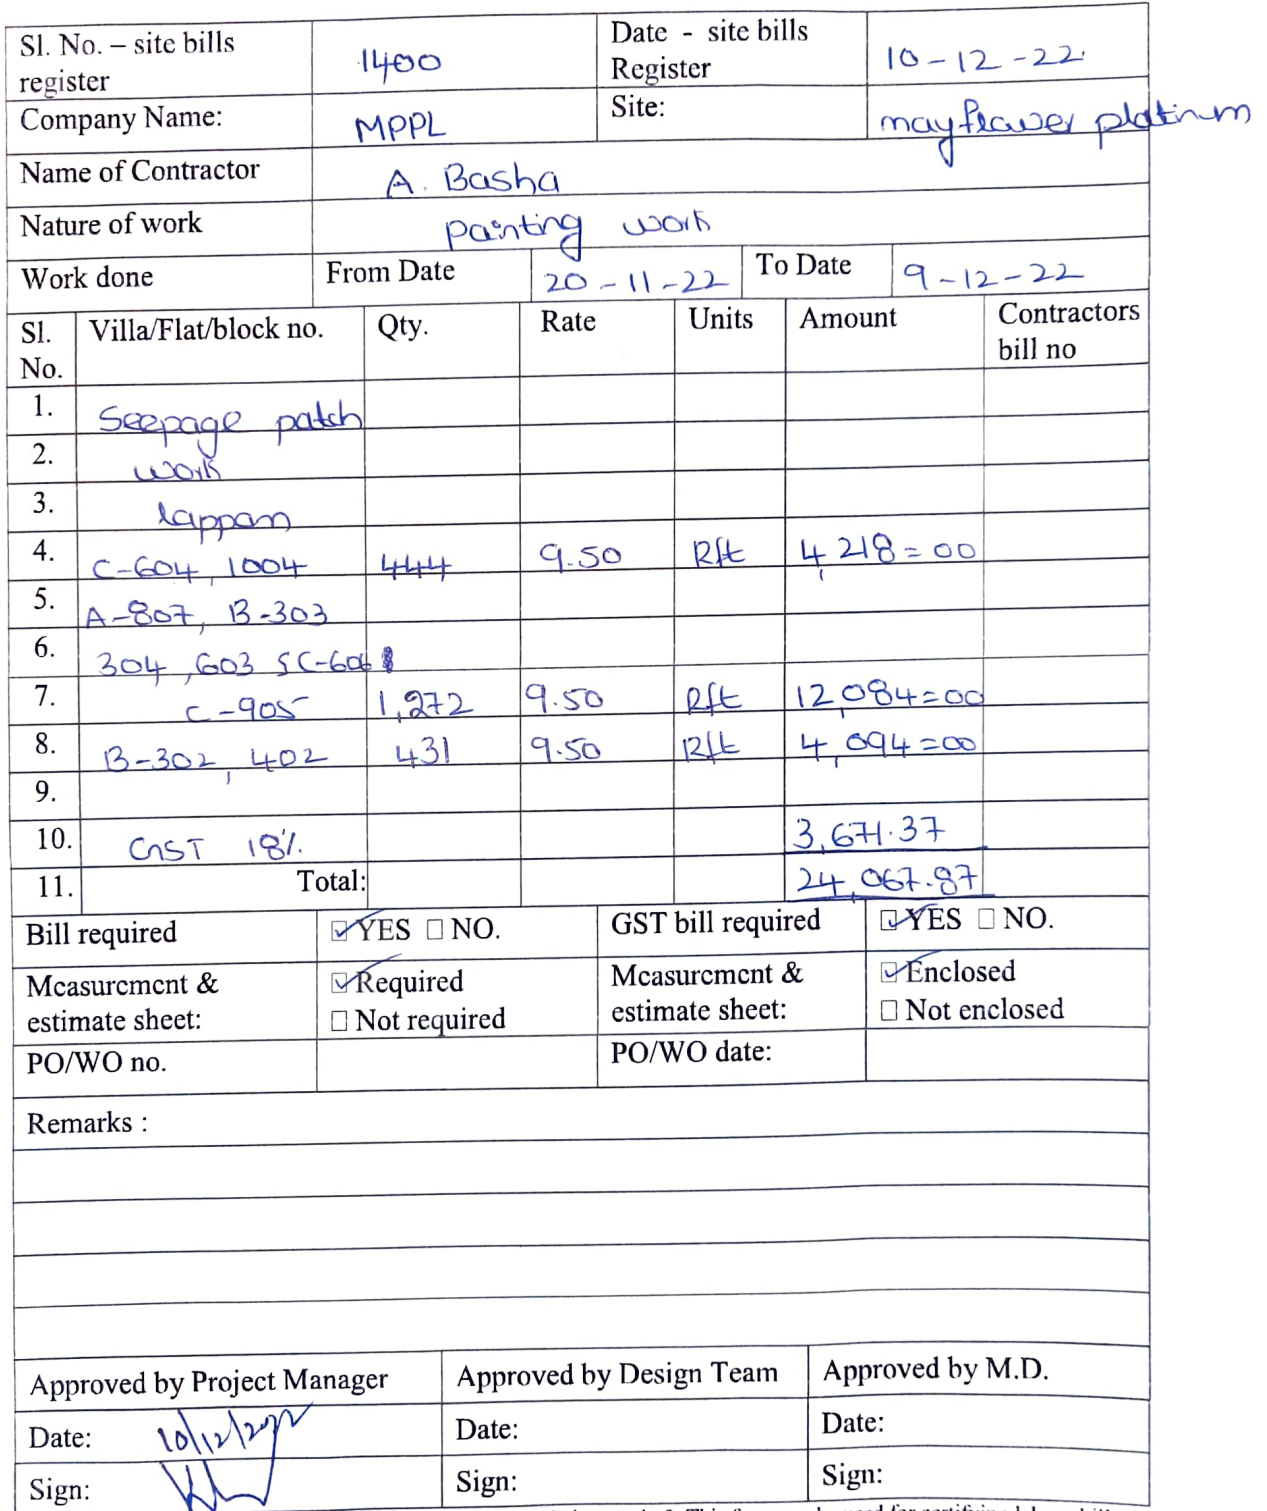 Sl. No. – site bills register 1400 Date - site bills Register 10-12-22
Company Name: MPPL Site: mayflower platinum
Name of Contractor A. Basha
Nature of work Painting work
Work done From Date 20-11-22 To Date 9-12-22
Sl. No. Villa/Flat/block no. Qty. Rate Units Amount Contractors bill no
1. Seepage patch
2. work
3. lappam
4. C-604, 1004 444 9.50 Rft 4,218=00
5. A-807, B-303
6. 304, 603 & C-606
7. C-905 1,272 9.50 Rft 12,084=00
8. B-302, 402 431 9.50 Rft 4,094=00
9.
10. GST 18% 3,671.37
11. Total: 24,067.87
Bill required ☑ YES ☐ NO. GST bill required ☑ YES ☐ NO.
Measurement & estimate sheet: ☑ Required ☐ Not required Measurement & estimate sheet: ☑ Enclosed ☐ Not enclosed
PO/WO no. PO/WO date:
Remarks :
Approved by Project Manager Approved by Design Team Approved by M.D.
Date: 10/12/2022 Date: Date:
Sign: Sign: Sign: